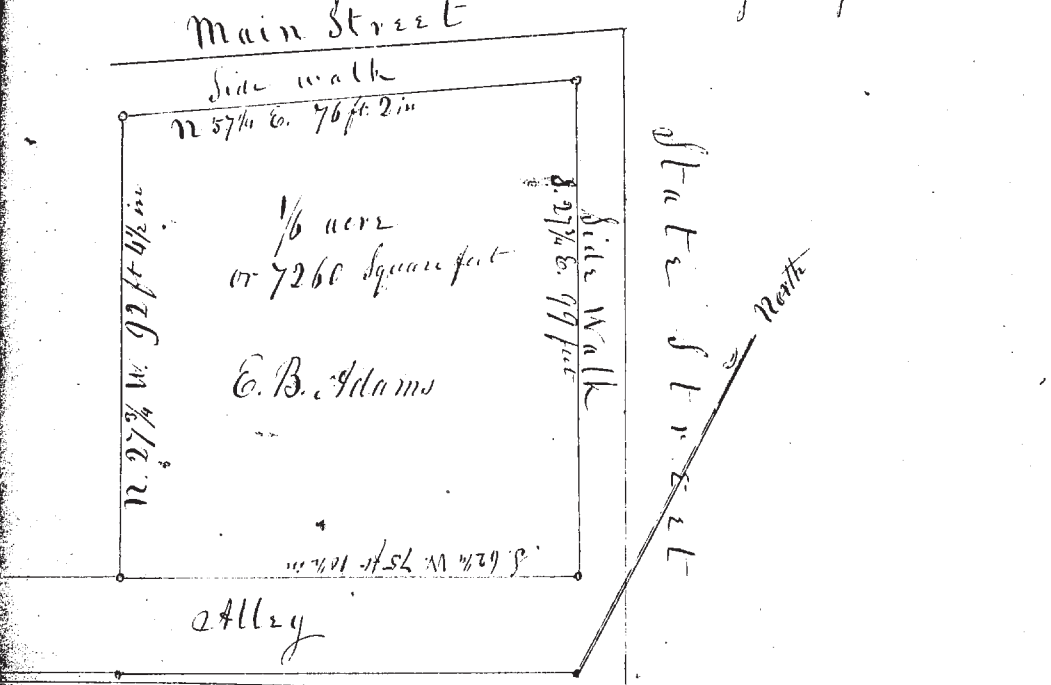 Main Street
Side walk
N 57¼ E. 76 ft. 2 in
N. 27¾ W. 92 ft 4½ in
1/6 acre
or 7260 Square feet
E. B. Adams
S. 27¾ E. 99 feet
Side Walk
State Street
North
S. 62¼ W. 75 ft. 10½ in
Alley